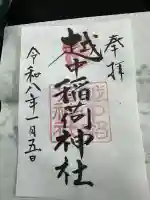 奉拝
越中稲荷神社
令和八年一月五日